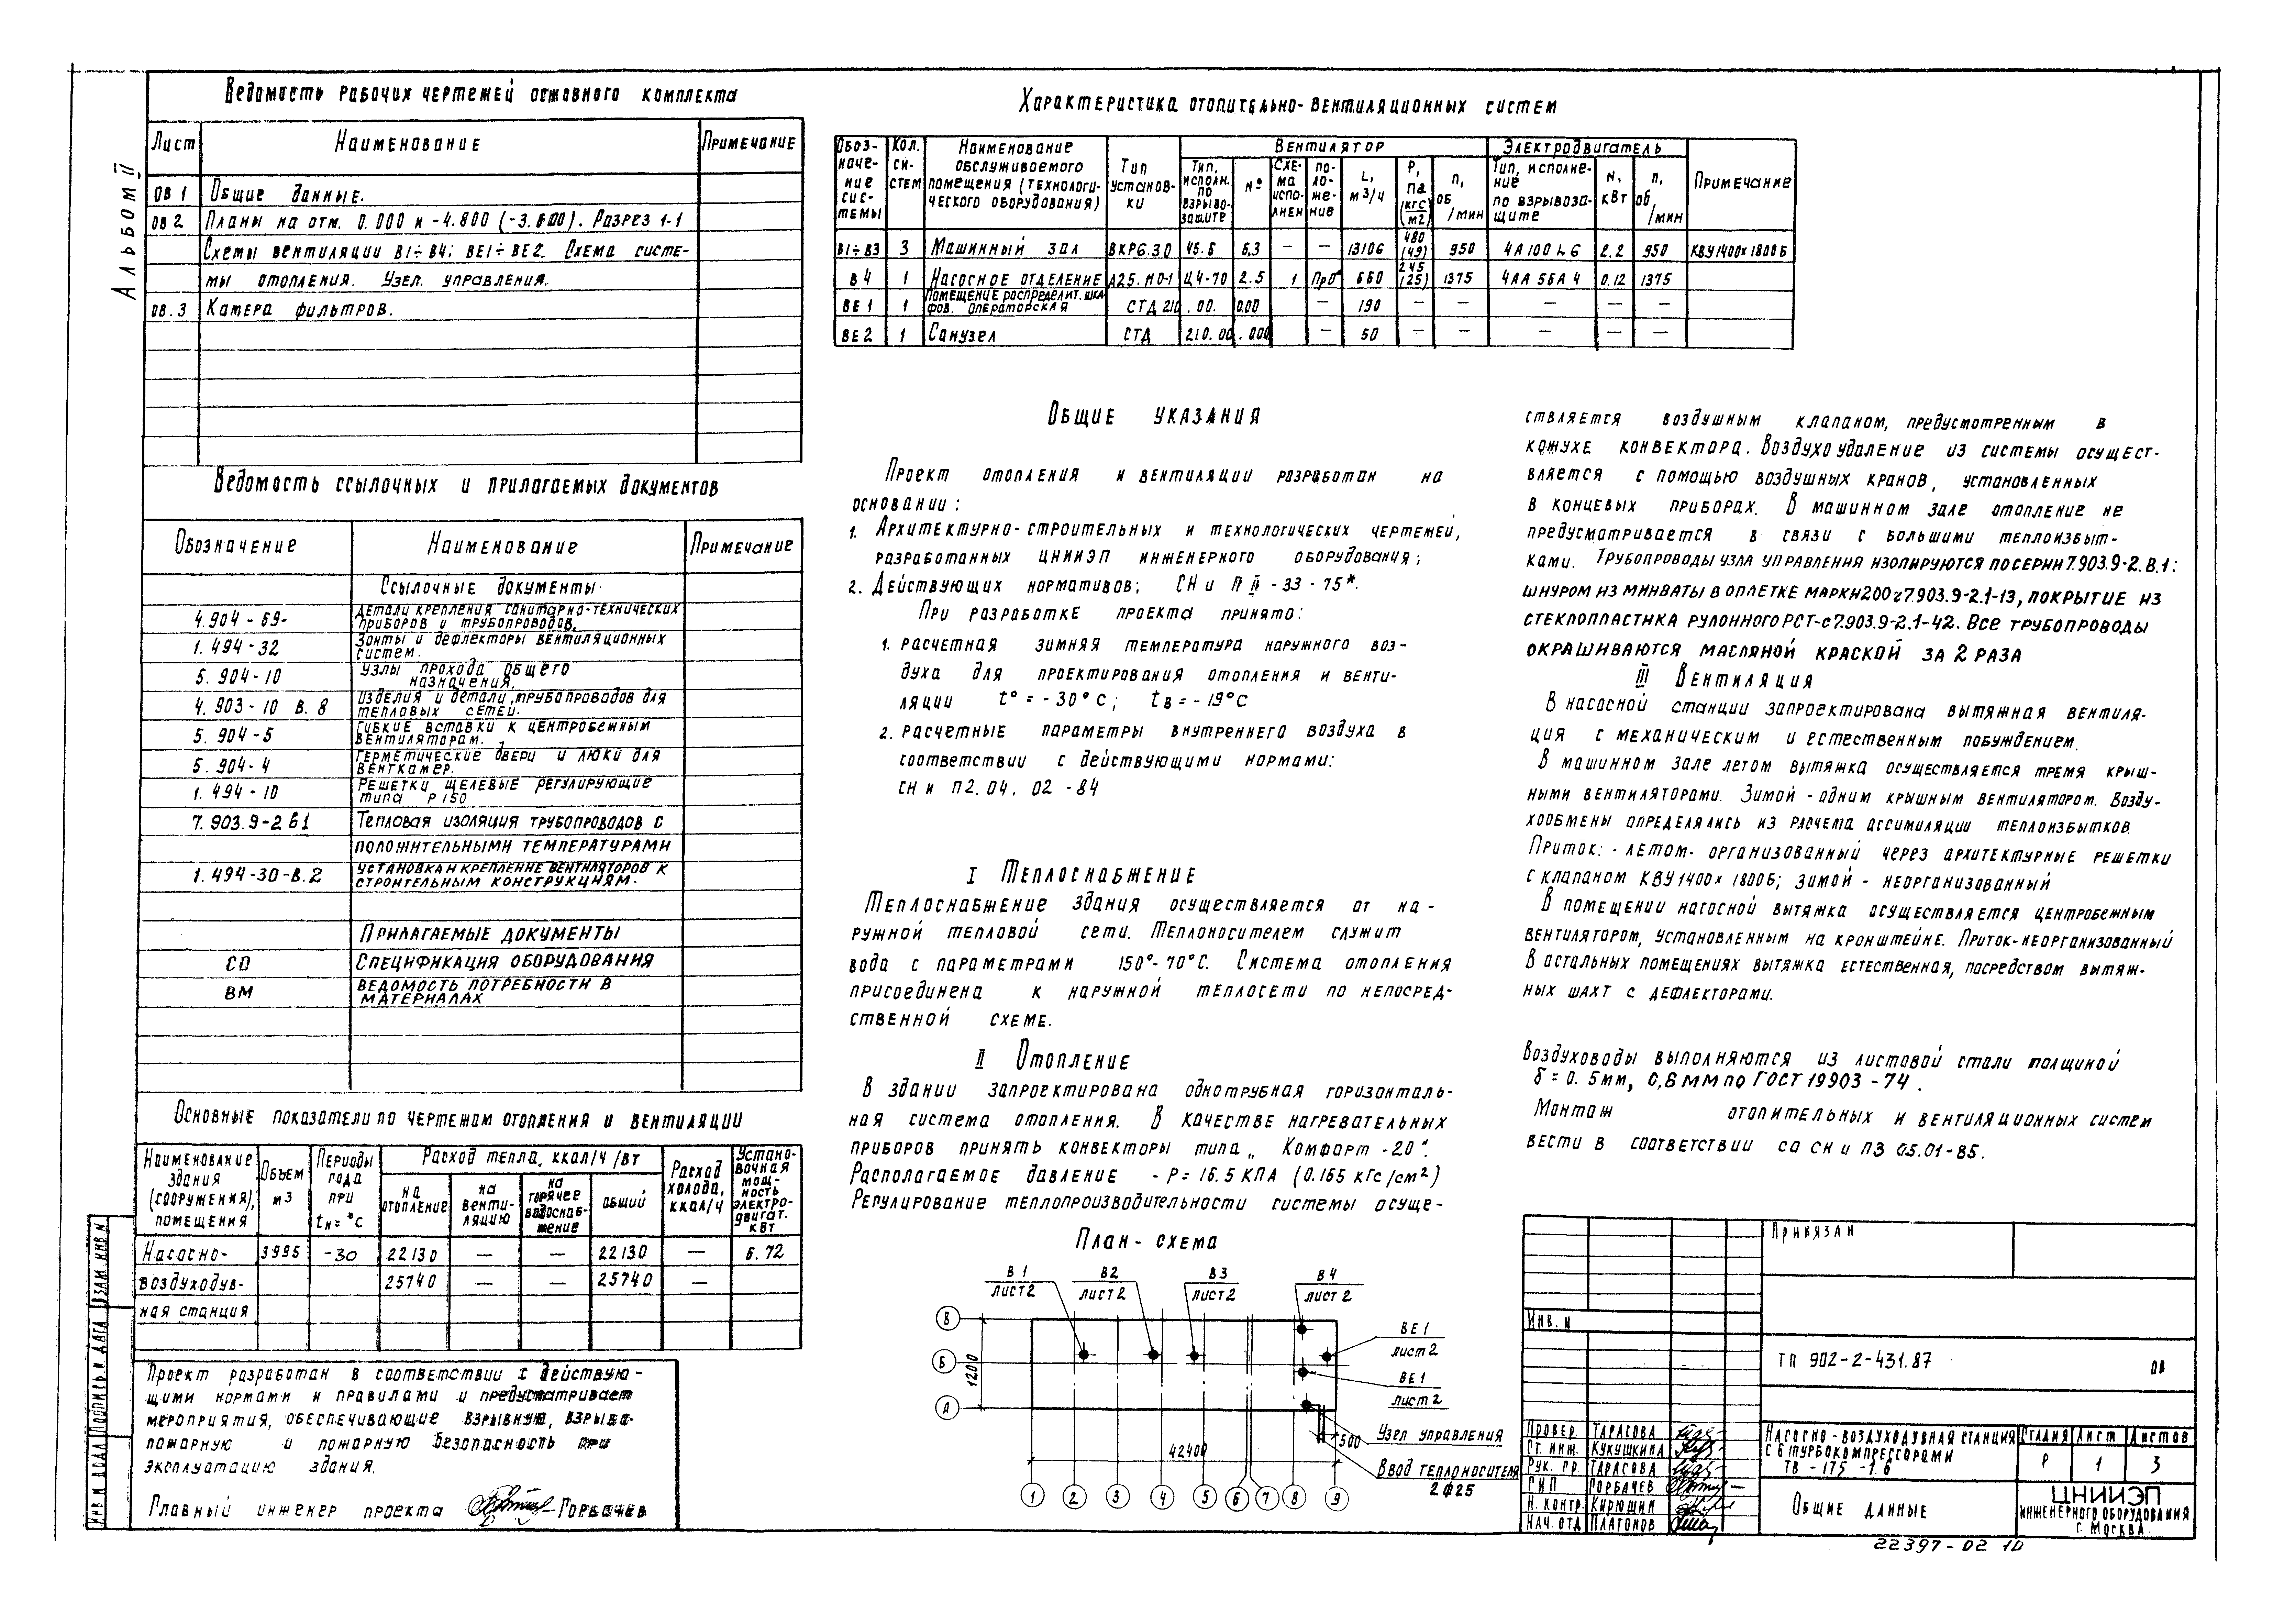 Альбом II
Ведомость рабочих чертежей основного комплекта
Лист Наименование Примечание
ОВ 1 Общие данные.
ОВ 2 Планы на отм. 0.000 и -4.800 (-3.600). Разрез 1-1
Схемы вентиляции В1÷В4; ВЕ1÷ВЕ2. Схема систе-
мы отопления. Узел управления.
ОВ.3 Камера фильтров.
Ведомость ссылочных и прилагаемых документов
Обозначение Наименование Примечание
Ссылочные документы
4.904-69- Детали крепления санитарно-технических
приборов и трубопроводов.
1.494-32 Зонты и дефлекторы вентиляционных
систем.
5.904-10 Узлы прохода общего
назначения.
4.903-10 В.8 Изделия и детали трубопроводов для
тепловых сетей.
5.904-5 Гибкие вставки к центробежным
вентиляторам.
5.904-4 Герметические двери и люки для
венткамер.
1.494-10 Решетки щелевые регулирующие
типа Р150
7.903.9-2 В1 Тепловая изоляция трубопроводов с
положительными температурами
1.494-30-В.2 Установка и крепление вентиляторов к
строительным конструкциям.
Прилагаемые документы
СО Спецификация оборудования
ВМ Ведомость потребности в
материалах
Основные показатели по чертежам отопления и вентиляции
Наименование здания (сооружения), помещения
Объем м3
Периоды года при tн= °С
Расход тепла, ккал/ч /вт
на отопление
на венти-ляцию
на горячее водоснаб-жение
общий
Расход холода, ккал/ч
Устано-вочная мощ-ность электро-двигат. квт
Насосно- 3995 -30 22130 — — 22130 — 6.72
воздуходув- 25740 — — 25740 —
ная станция
Проект разработан в соответствии с действую-
щими нормами и правилами и предусматривает
мероприятия, обеспечивающие взрывную, взрыво-
пожарную и пожарную безопасность при
эксплуатацию здания.
Главный инженер проекта Горбачев
Характеристика отопительно-вентиляционных систем
Обоз-наче-ние сис-темы
Кол. си-стем
Наименование обслуживаемого помещения (технологи-ческого оборудования)
Тип установ-ки
Вентилятор
Тип, исполн. по взрыво-защите
№
Схе-ма испо-лнен
По-ло-же-ние
L, м3/ч
Р, па (кгс/м2)
n, об/мин
Электродвигатель
Тип, исполне-ние по взрывоза-щите
N, кВт
n, об/мин
Примечание
В1÷В3 3 Машинный зал ВКР6.30 45.6 6,3 — — 13106 480 (49) 950 4А100L6 2.2 950 КВУ1400х1800Б
В4 1 Насосное отделение А25.110-1 Ц4-70 2.5 1 Пр0° 660 245 (25) 1375 4АА56А4 0.12 1375
ВЕ1 1 Помещение распределит. шка-фов. Операторская СТД 210.00.000 — 190 — — — — —
ВЕ2 1 Санузел СТД 210.00.000 — 50 — — — — —
Общие указания
Проект отопления и вентиляции разработан на
основании:
1. Архитектурно-строительных и технологических чертежей,
разработанных ЦНИИЭП инженерного оборудования;
2. Действующих нормативов; СН и П II-33-75*.
При разработке проекта принято:
1. Расчетная зимняя температура наружного воз-
духа для проектирования отопления и венти-
ляции t° = -30°С; tв = -19°С
2. Расчетные параметры внутреннего воздуха в
соответствии с действующими нормами:
СН и П2.04.02-84
I Теплоснабжение
Теплоснабжение здания осуществляется от на-
ружной тепловой сети. Теплоносителем служит
вода с параметрами 150°-70°С. Система отопления
присоединена к наружной теплосети по непосред-
ственной схеме.
II Отопление
В здании запроектирована однотрубная горизонталь-
ная система отопления. В качестве нагревательных
приборов принять конвекторы типа „Комфорт-20".
Располагаемое давление - Р= 16.5 КПА (0.165 кгс/см²)
Регулирование теплопроизводительности системы осуще-
План-схема
В1 лист2
В2 лист2
В3 лист2
В4 лист 2
ВЕ1 лист2
ВЕ1 лист2
В
Б
А
1200
42400
500
Узел управления
Ввод теплоносителя
2ф25
1 2 3 4 5 6 7 8 9
ствляется воздушным клапаном, предусмотренным в
кожухе конвектора. Воздухоудаление из системы осущест-
вляется с помощью воздушных кранов, установленных
в концевых приборах. В машинном зале отопление не
предусматривается в связи с большими теплоизбыт-
ками. Трубопроводы узла управления изолируются по серии 7.903.9-2.В.1:
шнуром из минваты в оплетке марки 200 с 7.903.9-2.1-13, покрытие из
стеклопластика рулонного РСТ-с7.903.9-2.1-42. Все трубопроводы
окрашиваются масляной краской за 2 раза
III Вентиляция
В насосной станции запроектирована вытяжная вентиля-
ция с механическим и естественным побуждением.
В машинном зале летом вытяжка осуществляется тремя крыш-
ными вентиляторами. Зимой - одним крышным вентилятором. Возду-
хообмены определялись из расчета ассимиляции теплоизбытков
Приток: - летом- организованный через архитектурные решетки
с клапаном КВУ1400х1800Б; зимой - неорганизованный
В помещении насосной вытяжка осуществляется центробежным
вентилятором, установленным на кронштейне. Приток-неорганизованный
В остальных помещениях вытяжка естественная, посредством вытяж-
ных шахт с дефлекторами.
Воздуховоды выполняются из листовой стали толщиной
δ = 0.5мм, 0,6мм по ГОСТ 19903-74.
Монтаж отопительных и вентиляционных систем
вести в соответствии со СН и П3 05.01-85.
Привязан
Инв. №
ТП 902-2-431.87 ОВ
Провер. Тарасова
Ст. инж. Кукушкина
Рук. гр. Тарасова
ГИП Горбачев
Н. контр. Кирюшин
Нач. отд Платонов
Насосно-воздуходувная станция
с 6 турбокомпрессорами
ТВ-175-1.6
Стадия Лист Листов
Р 1 3
Общие данные
ЦНИИЭП
инженерного оборудования
г. Москва
22397-02 10
Инв № подл Подпись и дата Взам. инв №